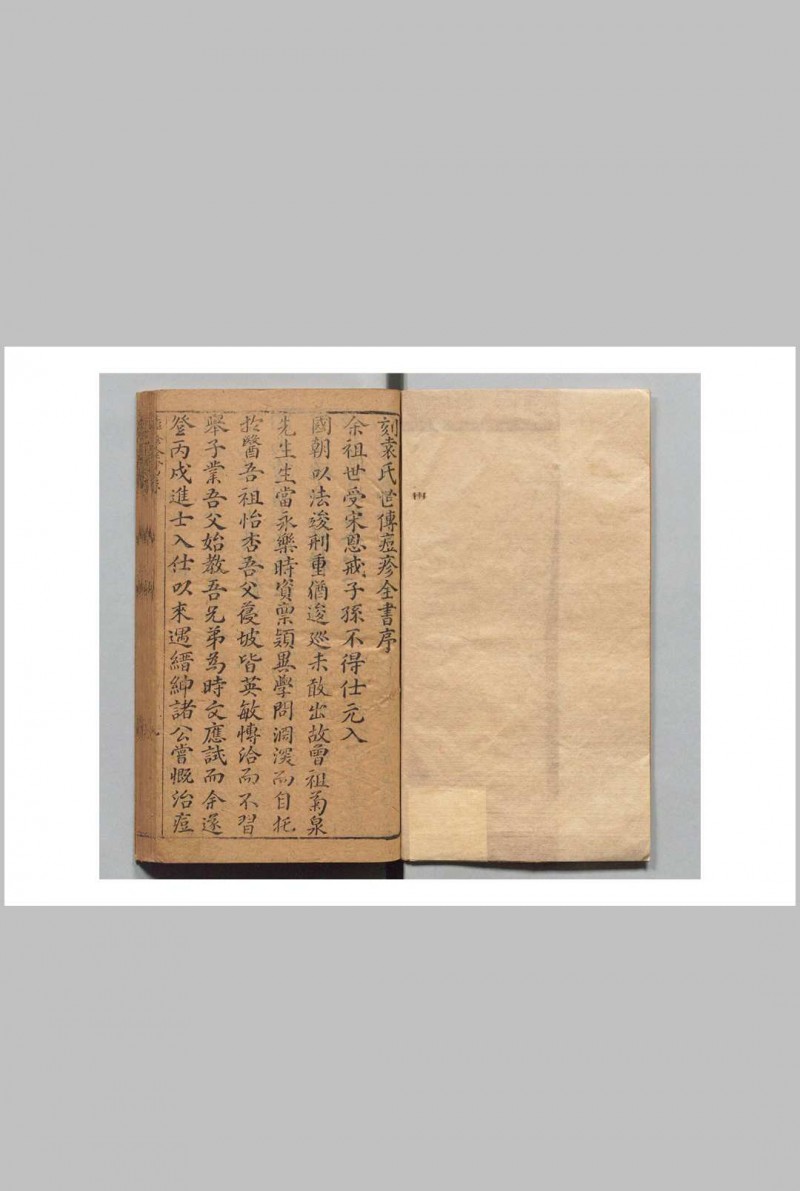 刻袁氏世傳痘疹全書序
余祖世受宋恩戒子孫不得仕元入
國朝以法逡刑重猶逡巡未敢出故曾祖菊泉
先生生當永樂時資稟穎異學問淵深而自托
於醫吾祖怡杏吾父葠坡皆英敏博洽而不習
舉子業吾父始教吾兄弟為時文應試而余遂
登丙戌進士入仕以來遇縉紳諸公嘗慨治痘